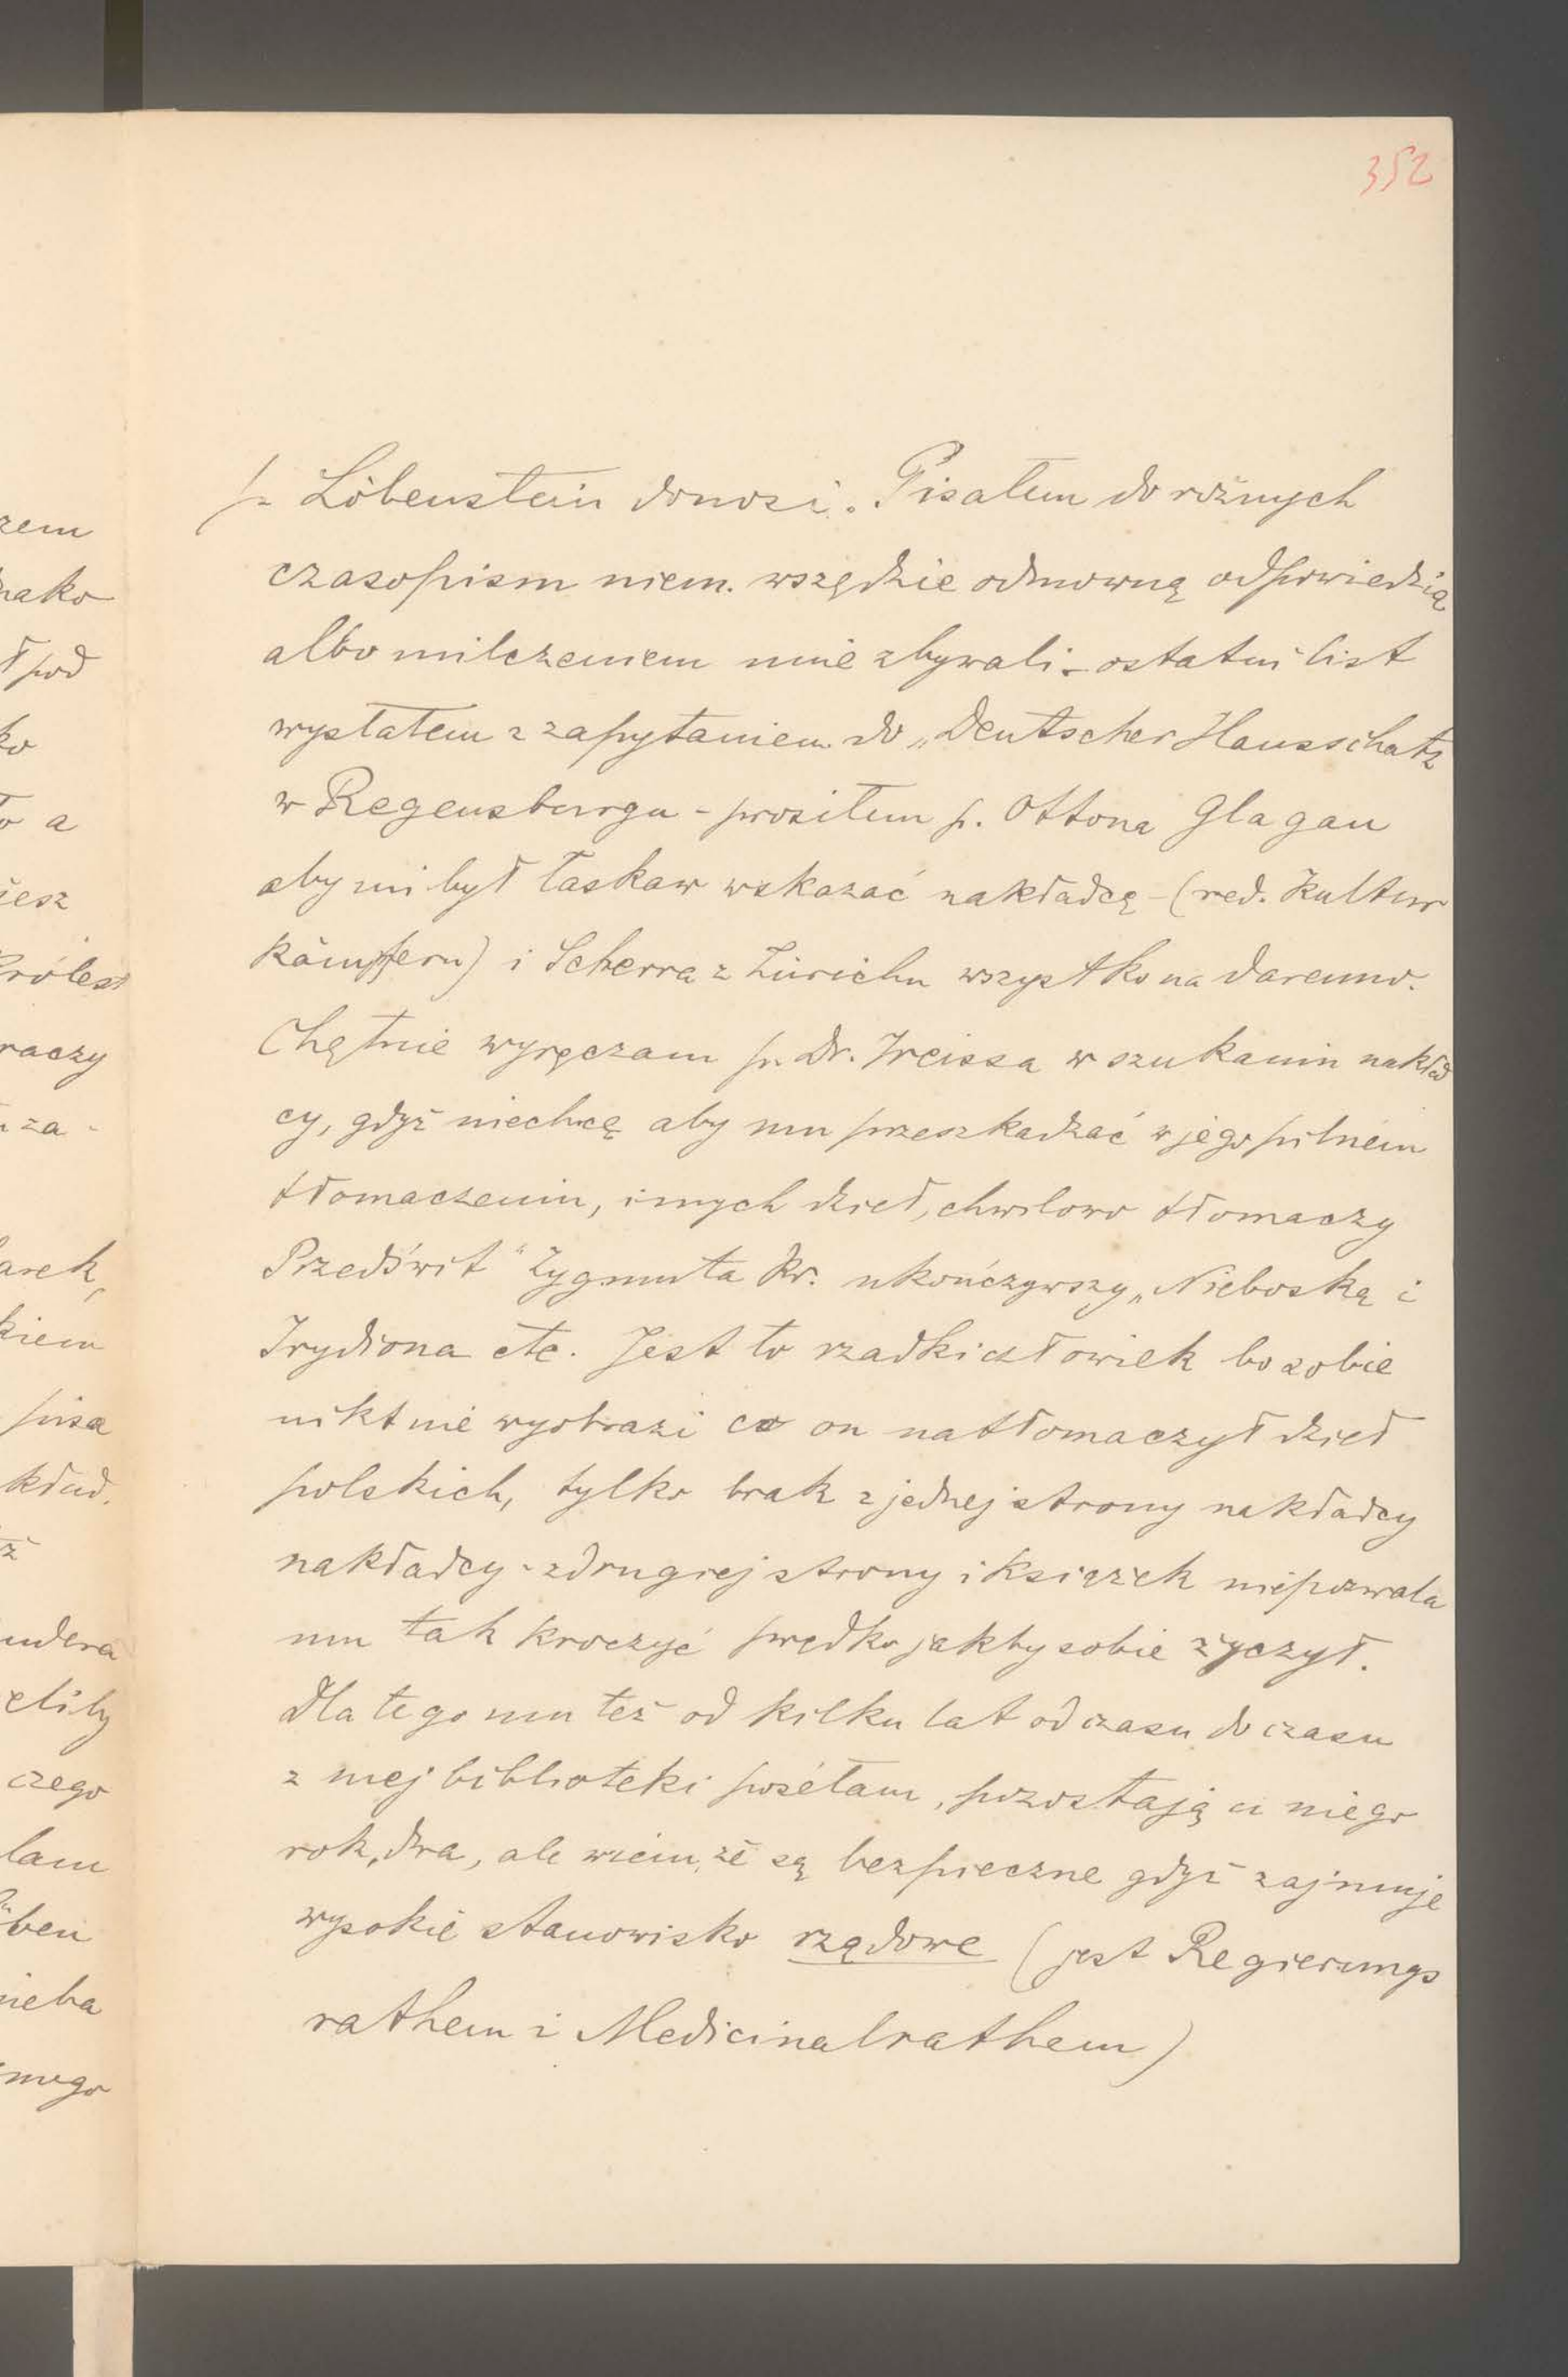 352
p. Löbenstein donosi. Pisałem do różnych
czasopism niem. wszędzie odmowną odpowiedzią
albo milczeniem mnie zbywali – ostatni list
wysłałem z zapytaniem do „Deutscher Hausschatz
w Regensburgu – prosiłem p. Ottona Glagau
aby mi był łaskaw wskazać nakładcę – (red. Kultur
kämpferu) i Scherra z Zürichu wszystko na daremno.
Chętnie wyręczam p. Dr. Weissa w szukaniu nakład
cy, gdyż niechcę aby mu przeszkadzać w jego pilném
tłomaczeniu, innych dzieł, chwilowo tłomaczy
Przedświt" Zygmunta Kr. ukończywszy „Nieboską i
Irydiona etc. Jest to rzadki człowiek bo sobie
nikt nie wyobrazi co on natłomaczył dzieł
polskich, tylko brak z jednej strony nakładcy
nakładcy – z drugiej strony i książek niepozwala
mu tak kroczyć prędko jakby sobie życzył.
Dla tego mu też od kilku lat od czasu do czasu
z mej biblioteki posełam, pozostają u niego
rok, dwa, ale wiem, że są bezpieczne gdyż zajmuje
wysokie stanowisko rządowe (jest Regierungs
rathem i Medicinalrathem)
zem
nako
ł pod
ko
a
żesz
raczy
za -
arek,
kiem
pisa
kład.
ż
czego
lam
ben
nieba